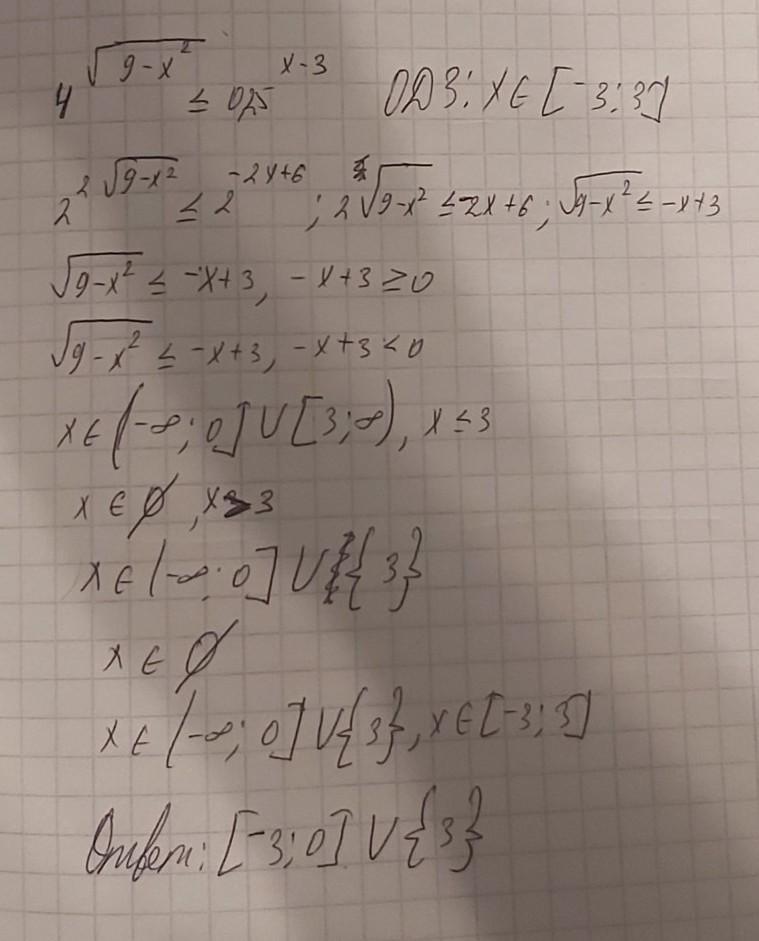 4^√(9-x²) ≤ 0,25^(x-3) ОДЗ: x∈[-3;3]
2^(2√(9-x²)) ≤ 2^(-2x+6); 2√(9-x²) ≤ -2x+6; √(9-x²) ≤ -x+3
√(9-x²) ≤ -x+3, -x+3≥0
√(9-x²) ≤ -x+3, -x+3<0
x∈(-∞;0]∪[3;∞), x≤3
x∈∅, x>3
x∈(-∞;0]∪{3}
x∈∅
x∈(-∞;0]∪{3}, x∈[-3;3]
Ответ: [-3;0]∪{3}